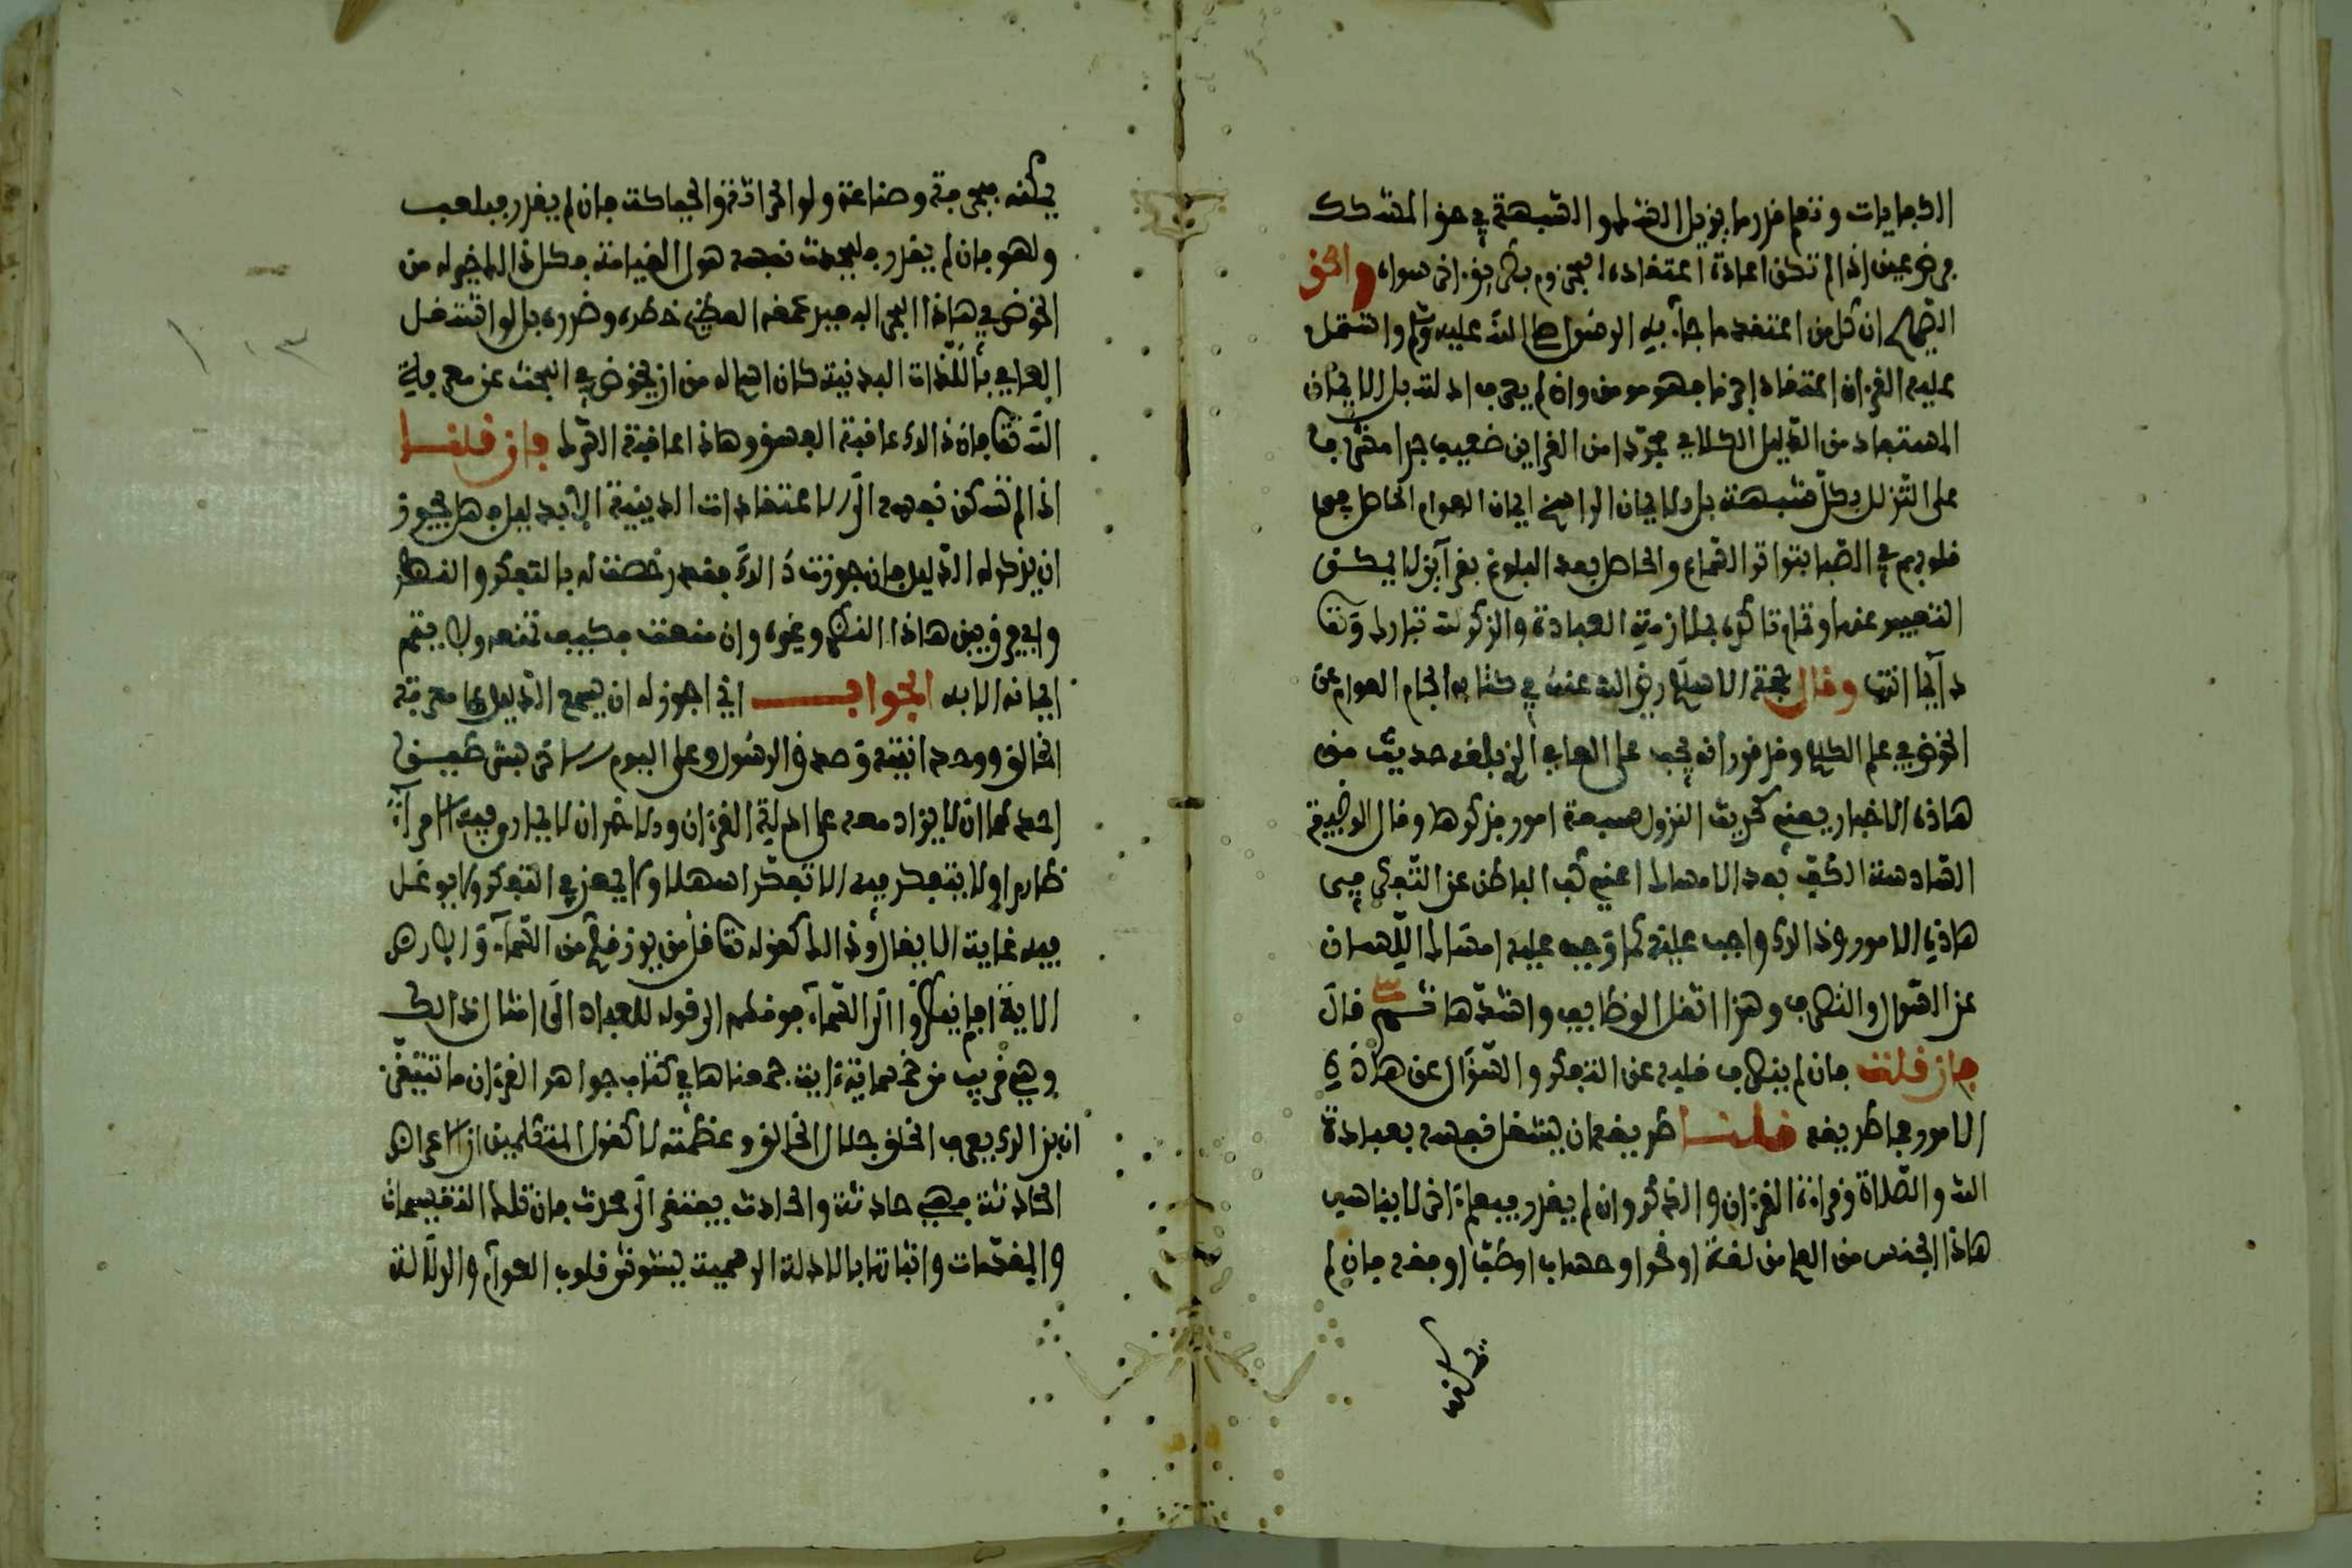 الكفايات وتعلم قدر ما يزيل الشك والشبهة في حق المتشكك
فرض عين اذا لم تكن اعادة اعتقاده المجزوم بطريق اخر سواه والحق
الصريح ان كل من اعتقد ما جاء به الرسول صلى الله عليه وسلم واشتمل
عليه القرءان اعتقادا جزما فهو مومن وان لم يعرف ادلته بل الايمان
المستفاد من الدليل الكلامي مجردا من القراين ضعيف جدا مشرف
على التزلزل بكل شبهة بل الايمان الراسخ ايمان العوام الحاصل في
قلوبهم في الصبا بتواتر السماع والحاصل بعد البلوغ بقرآين لا يمكن
التعبير عنها وتمام تاكده بملازمة العبادة والذكر لله تبارك وتعالى
دآيما انتهى وقال حجة الاسلام رضي الله عنه في كتابه الجام العوام عن
الخوض في علم الكلام وقد قرر انه يجب على العامي الذي بلغه حديث من
هاذه الاخبار يعني كحديث النزول سبعة امور فذكرها وقال الوظيفة
السادسة الكف بعد الامساك اعني كف الباطن عن التفكر في
هاذه الامور وذالك واجب عليه كما وجب عليه امساك اللسان
عن السوال والتصرف وهذا اثقل الوظايف واشدها ثم قال
فان قلت فان لم ينصرف قلبه عن التفكر والسؤال عن هاذه
الامور فما طريقه قلنا طريقه ان يشغل نفسه بعبادة
الله والصلاة وقراءة القرءان والذكر وان لم يقدر فبعلم اخر لا يناسب
هاذا الجنس من العلم من لغة او نحو او حساب او طب او فقه فان لم
يمكنه
يمكنه فبحرفة وصناعة ولو الحراثة والحياكة فان لم يقدر فبلعب
ولهو فان لم يقدر فليحدث نفسه هول القيامة فكل ذالك خير له من
الخوض في هاذا البحر البعيد عمقه العظيم خطره وضرره بل لو اشتغل
العامي باللذات البدنية كان اسلم له من ان يخوض في البحث عن معرفة
الله تعالى فان ذالك عاقبة الفسق وهاذا عاقبة الشرك فان قلت
اذا لم تسكن نفسه الى الاعتقادات الدينية الا بدليل فهل يجوز
ان يذكر له الدليل فان جوزت ذالك فقد رخصت له بالتفكر والنظر
واي فرق بين هاذا النظر وغيره وان منعت فكيف تمنعه ولا يتم
ايمانه الا به الجواب اني اجوز له ان يسمع الدليل على معرفة
الخالق ووحدانيته وصدق الرسول وعلى اليوم الاخر بشرطين
احدهما ان لا يزاد معه على ادلة القرءان والاخر ان لا يماري فيه الا مرآء
ظاهرا ولا يتفكر فيه الا تفكرا سهلا ولا يمعن في التفكر ولا يوغل
فيه غاية الايغال وذالك كقوله تعالى قل من يرزقكم من السمآء والارض
الاية افلم ينظروا الى السمآء فوقهم الى قوله للعباد الى امثال ذالك
وهي قريب من خمسماية ءاية جمعناها في كتاب جواهر القرءان ما تنبغي
ان بذالك يعرف الخلق جلال الخالق وعظمته لا كقول المتكلمين ان الاعراض
الحادثة فهي حادثة والحادث يفتقر الى محدث فان تلك التقسيمات
والمقدمات واثباتها بالادلة الرسمية يشوش قلوب العوام والدلالة
١٠٣